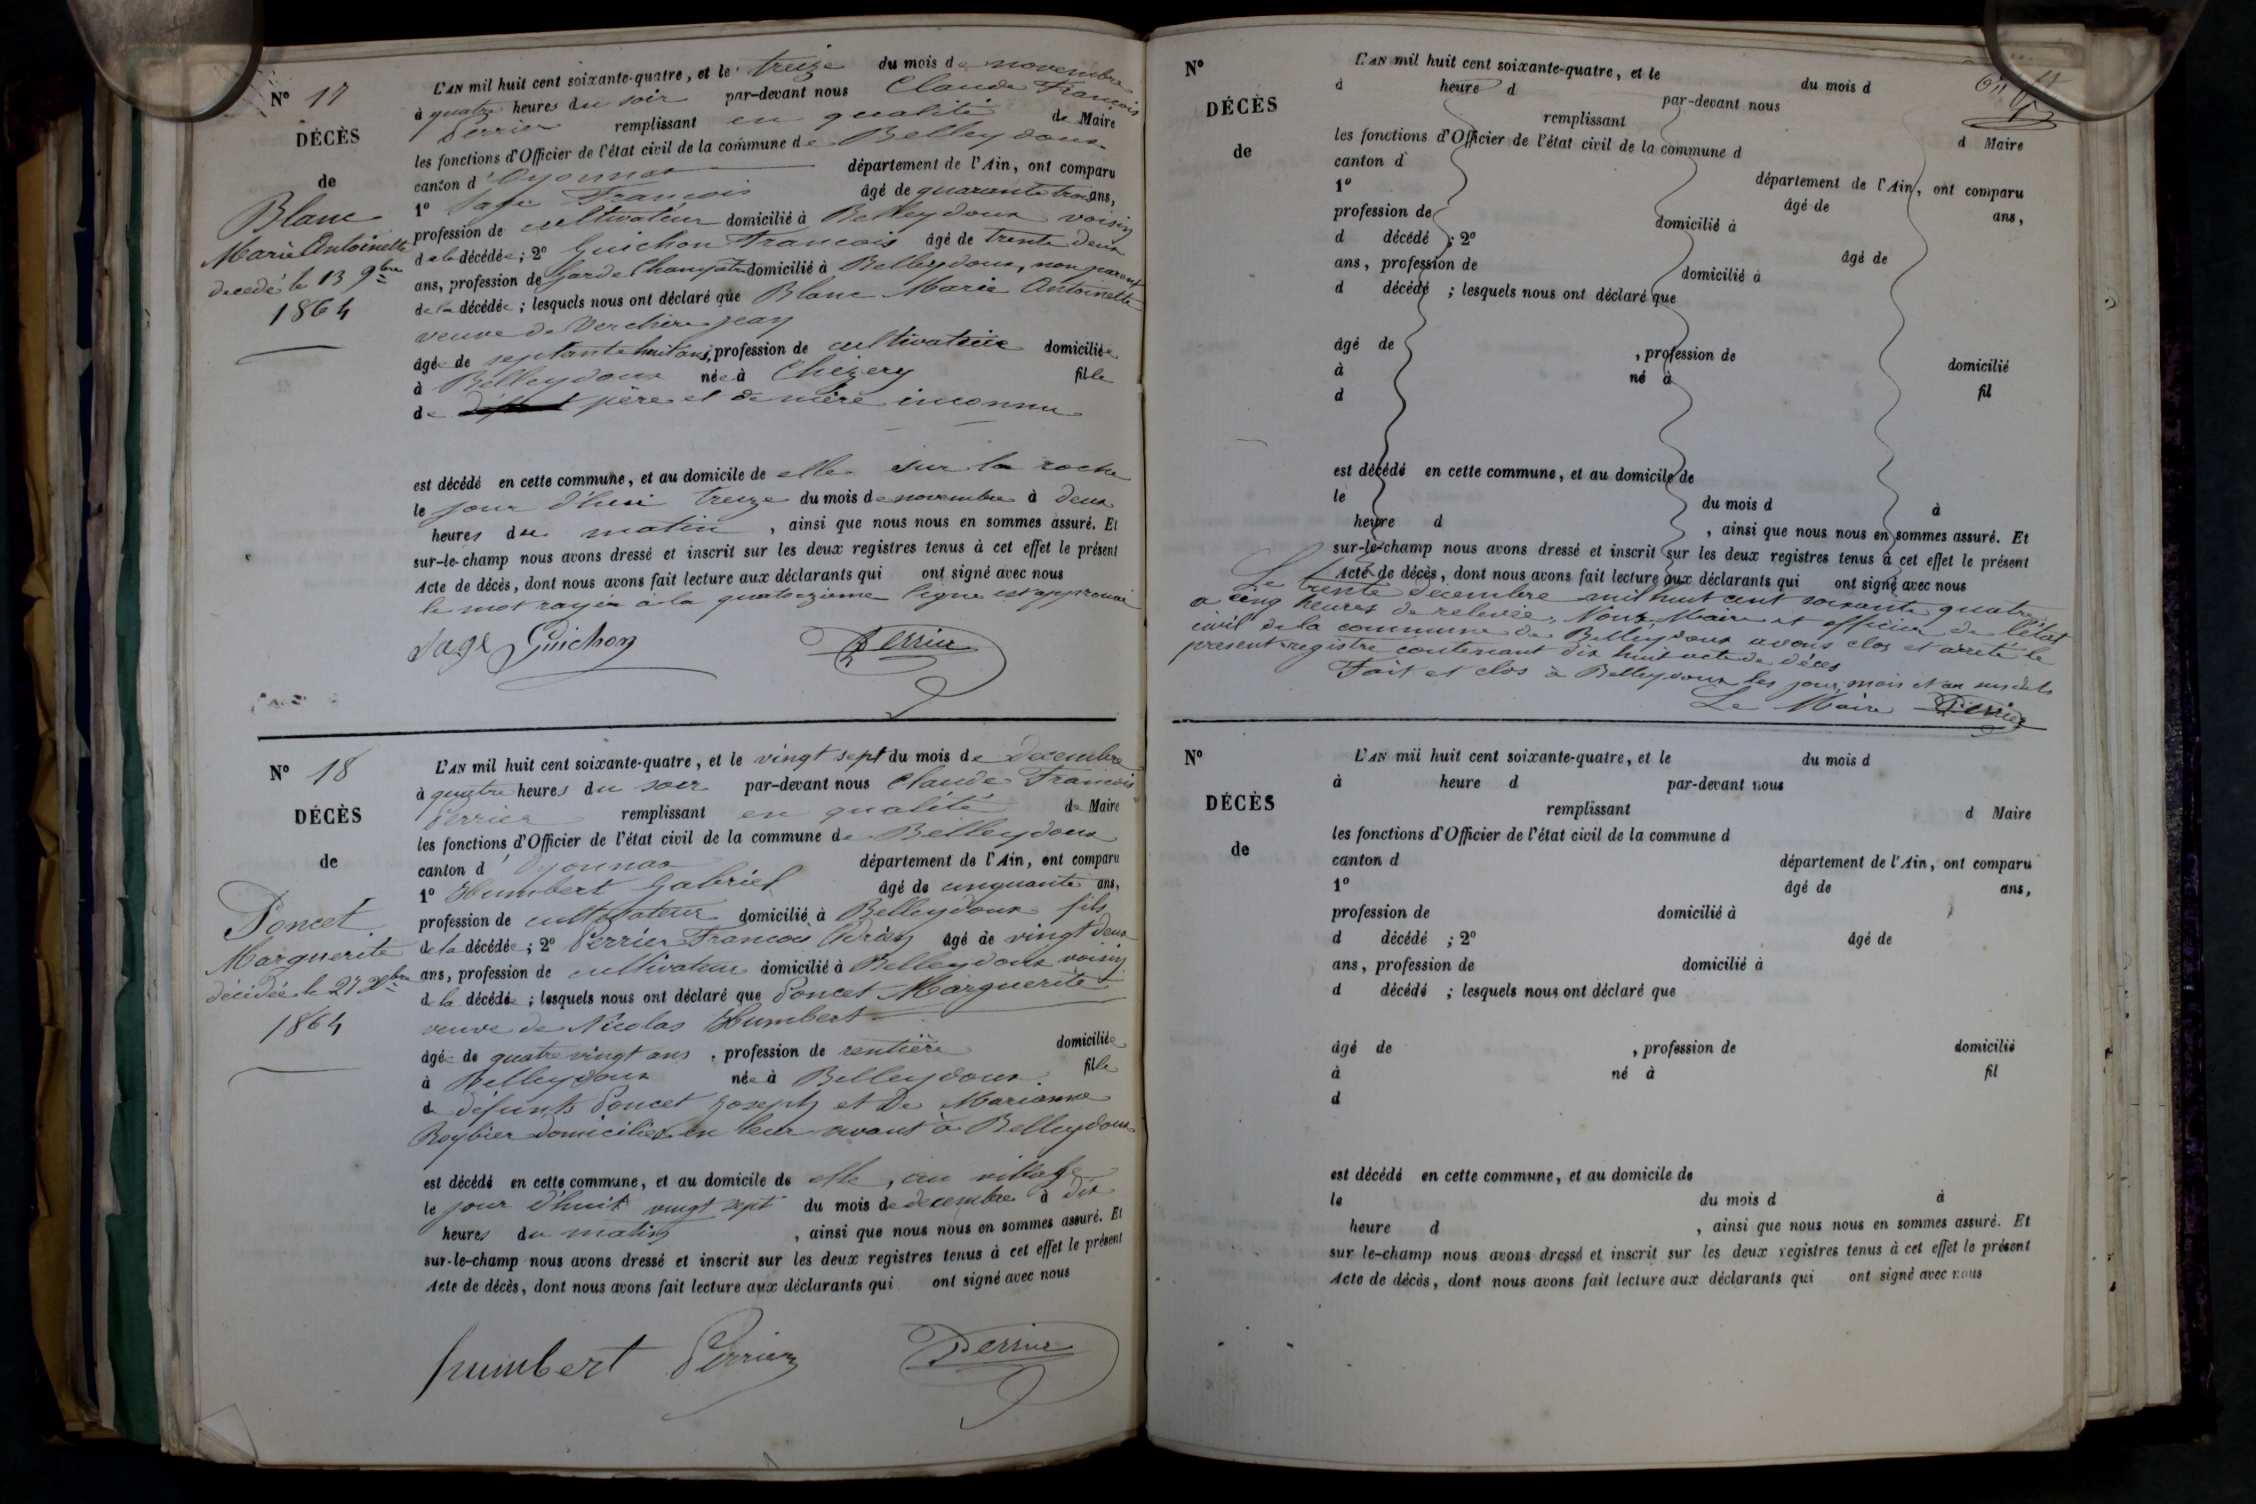 N° 17
DÉCÈS
de
Blanc
Marie Antoinette
decedé le 13 9bre
1864
L'AN mil huit cent soixante-quatre, et le treize du mois de novembre
à quatre heures du soir par-devant nous Claude François
Perrier remplissant en qualité de Maire
les fonctions d'Officier de l'état civil de la commune de Belleydoux
canton d'Oyonnax département de l'Ain, ont comparu
1° Sage François âgé de quarante trois ans,
profession de cultivateur domicilié à Belleydoux voisin
de la décédée; 2° Guichon François âgé de trente deux
ans, profession de Garde Champêtre domicilié à Belleydoux, non parent
de la décédée; lesquels nous ont déclaré que Blanc Marie Antoinette
veuve de Verchère Jean
âgée de septante huit ans, profession de cultivatrice domiciliée
à Belleydoux née à Chézery fille
de père et de mère inconnu
est décédé en cette commune, et au domicile de elle sur la roche
le jour d'hui treize du mois de novembre à deux
heures du matin, ainsi que nous nous en sommes assuré. Et
sur-le-champ nous avons dressé et inscrit sur les deux registres tenus à cet effet le présent
Acte de décès, dont nous avons fait lecture aux déclarants qui ont signé avec nous
le mot rayer à la quatorzième ligne est approuvé
Sage Guichon Perrier
N° 18
DÉCÈS
de
Poncet
Marguerite
décédée le 27 Xbre
1864
L'AN mil huit cent soixante-quatre, et le vingt sept du mois de decembre
à quatre heures du soir par-devant nous Claude François
Perrier remplissant en qualité de Maire
les fonctions d'Officier de l'état civil de la commune de Belleydoux
canton d'Oyonnax département de l'Ain, ont comparu
1° Humbert Gabriel âgé de cinquante ans,
profession de cultivateur domicilié à Belleydoux fils
de la décédée; 2° Perrier François âgé de vingt deux
ans, profession de cultivateur domicilié à Belleydoux voisin
de la décédée; lesquels nous ont déclaré que Poncet Marguerite
veuve de Nicolas Humbert
âgée de quatre vingt ans, profession de rentière domiciliée
à Belleydoux née à Belleydoux. fille
de défunts Poncet Joseph et De Marianne
Roybier domiciliés en leur vivant à Belleydoux
est décédé en cette commune, et au domicile de elle, au village
le jour d'huit vingt sept du mois de decembre à dix
heures du matin, ainsi que nous nous en sommes assuré. Et
sur-le-champ nous avons dressé et inscrit sur les deux registres tenus à cet effet le présent
Acte de décès, dont nous avons fait lecture aux déclarants qui ont signé avec nous
humbert Perrier Perrier
N°
DÉCÈS
de
L'AN mil huit cent soixante-quatre, et le du mois d
à heure d par-devant nous
remplissant d Maire
les fonctions d'Officier de l'état civil de la commune d
canton d département de l'Ain, ont comparu
1° âgé de ans,
profession de domicilié à
d décédé ; 2° âgé de
ans, profession de domicilié à
d décédé ; lesquels nous ont déclaré que
âgé de , profession de domicilié
à né à fil
d
est décédé en cette commune, et au domicile de
le du mois d à
heure d , ainsi que nous nous en sommes assuré. Et
sur-le-champ nous avons dressé et inscrit sur les deux registres tenus à cet effet le présent
Acte de décès, dont nous avons fait lecture aux déclarants qui ont signé avec nous
Le trente decembre mil huit cent soixante quatre
a cinq heures de relevée, Nous Maire et officier de l'état
civil de la commune de Belleydoux avons clos et arrêté le
présent registre contenant dix huit acte de décès
Fait et clos à Belleydoux les jour, mois et an susdits
Le Maire Perrier
N°
DÉCÈS
de
L'AN mil huit cent soixante-quatre, et le du mois d
à heure d par-devant nous
remplissant d Maire
les fonctions d'Officier de l'état civil de la commune d
canton d département de l'Ain, ont comparu
1° âgé de ans,
profession de domicilié à
d décédé ; 2° âgé de
ans, profession de domicilié à
d décédé ; lesquels nous ont déclaré que
âgé de , profession de domicilié
à né à fil
d
est décédé en cette commune, et au domicile de
le du mois d à
heure d , ainsi que nous nous en sommes assuré. Et
sur le-champ nous avons dressé et inscrit sur les deux registres tenus à cet effet le présent
Acte de décès, dont nous avons fait lecture aux déclarants qui ont signé avec nous